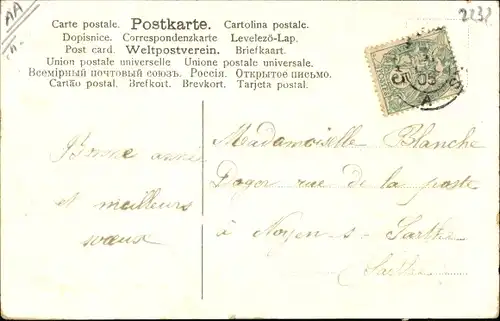 AA
2232
Carte postale. Postkarte. Cartolina postale.
Dopisnice. Correspondenzkarte Levelező-Lap.
Post card. Weltpostverein. Briefkaart.
Union postale universelle Unione postale universale.
Всемірный почтовый союзъ. Россія. Открытое письмо.
Cartão postal. Brefkort. Brevkort. Tarjeta postal.
5
05
A
Bonne année
et meilleurs
vœux
Madamoiselle Blanche
Dagor rue de la poste
à Noyen-s-Sarthe
Sarthe